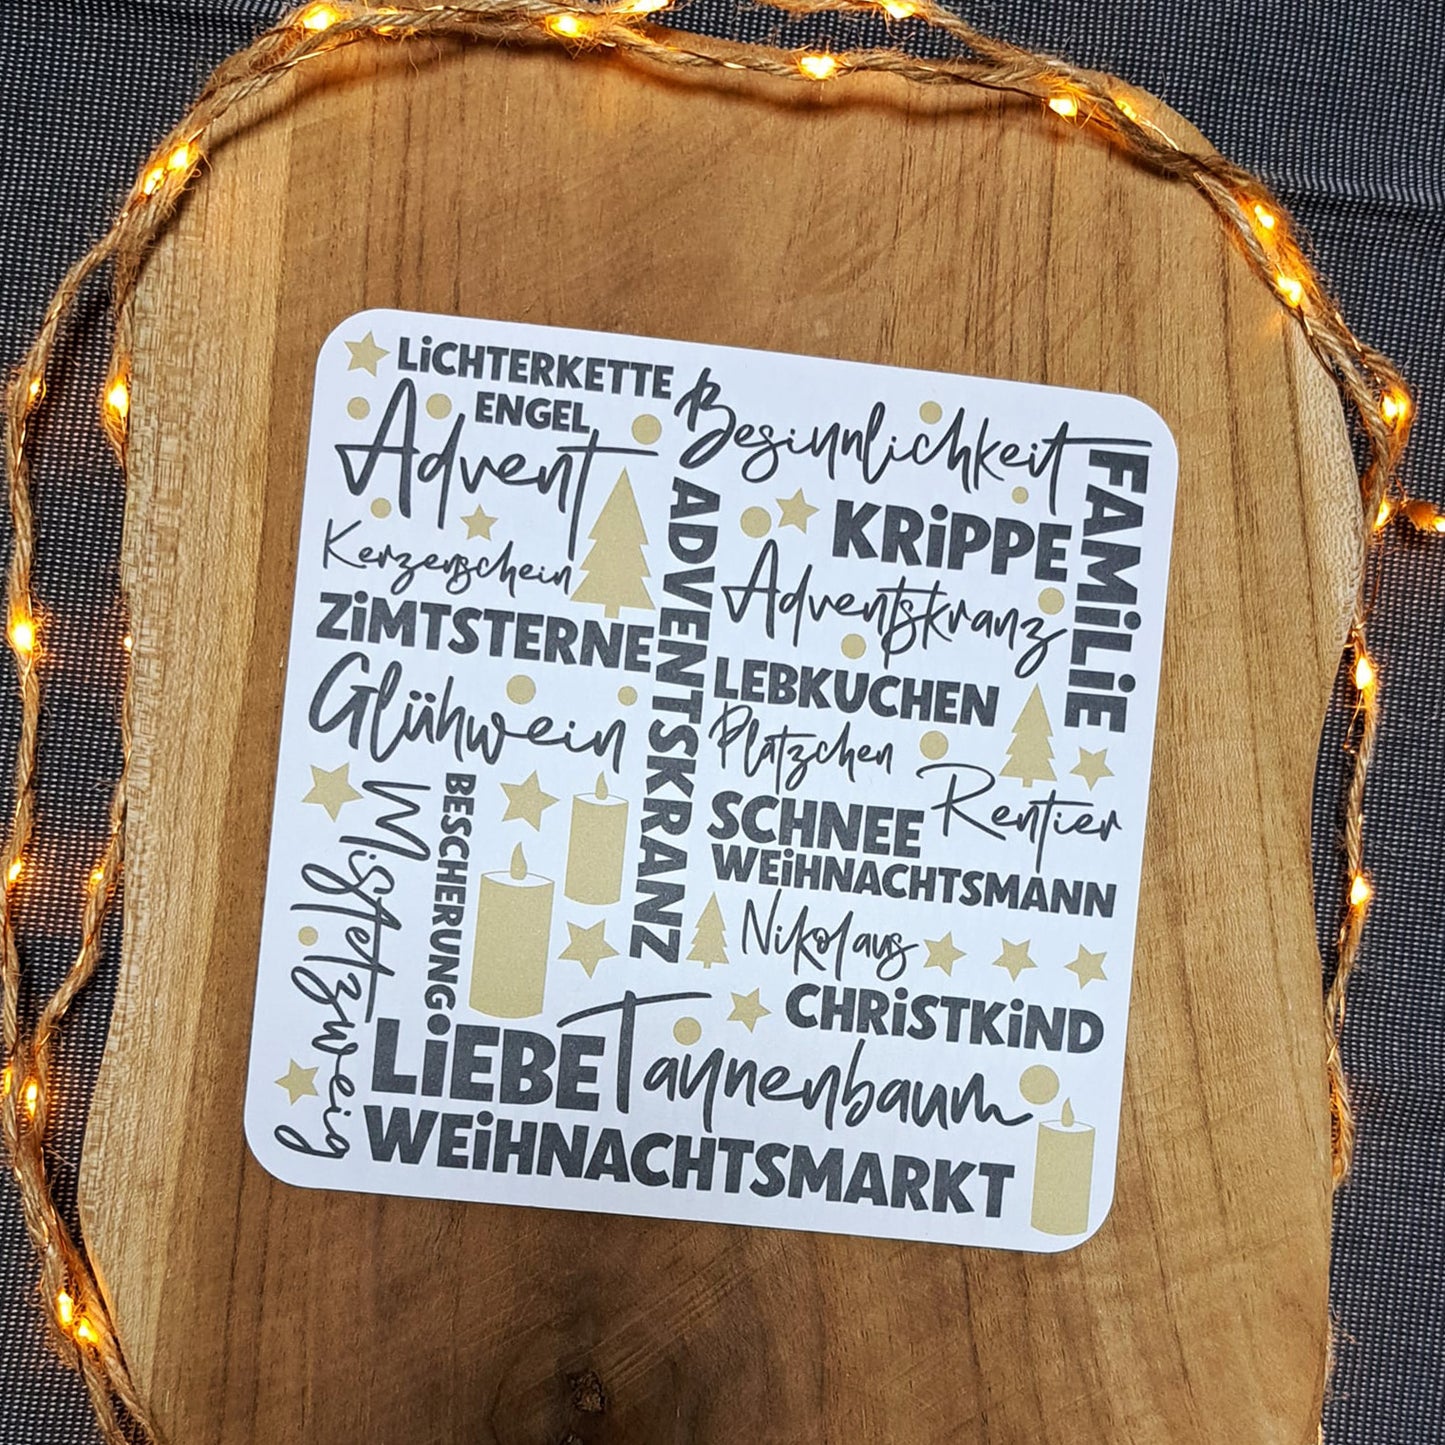 LiCHTERKETTE
ENGEL
Advent
Besinnlichkeit
FAMiLiE
KRiPPE
ADVENTSKRANZ
Kerzenschein
Adventskranz
ZiMTSTERNE
LEBKUCHEN
Glühwein
Plätzchen
Rentier
Mistelzweig
BESCHERUNG
SCHNEE
WEiHNACHTSMANN
Nikolaus
CHRiSTKiND
LiEBE
Tannenbaum
WEiHNACHTSMARKT